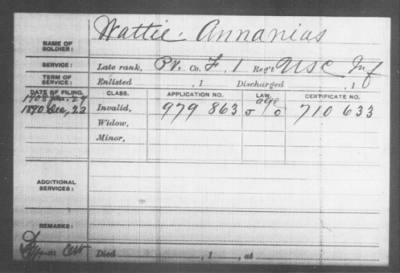 NAME OF SOLDIER: Wattie Annanias
SERVICE: Late rank, Pv. Co. F, 1 Reg't USC Inf
TERM OF SERVICE: Enlisted , 1 Discharged , 1
DATE OF FILING. CLASS. APPLICATION NO. LAW. CERTIFICATE NO.
age
1890 Dec, 23 Invalid, 979 863 710 633
Widow,
Minor,
ADDITIONAL SERVICES:
REMARKS:
Died , 1 , at